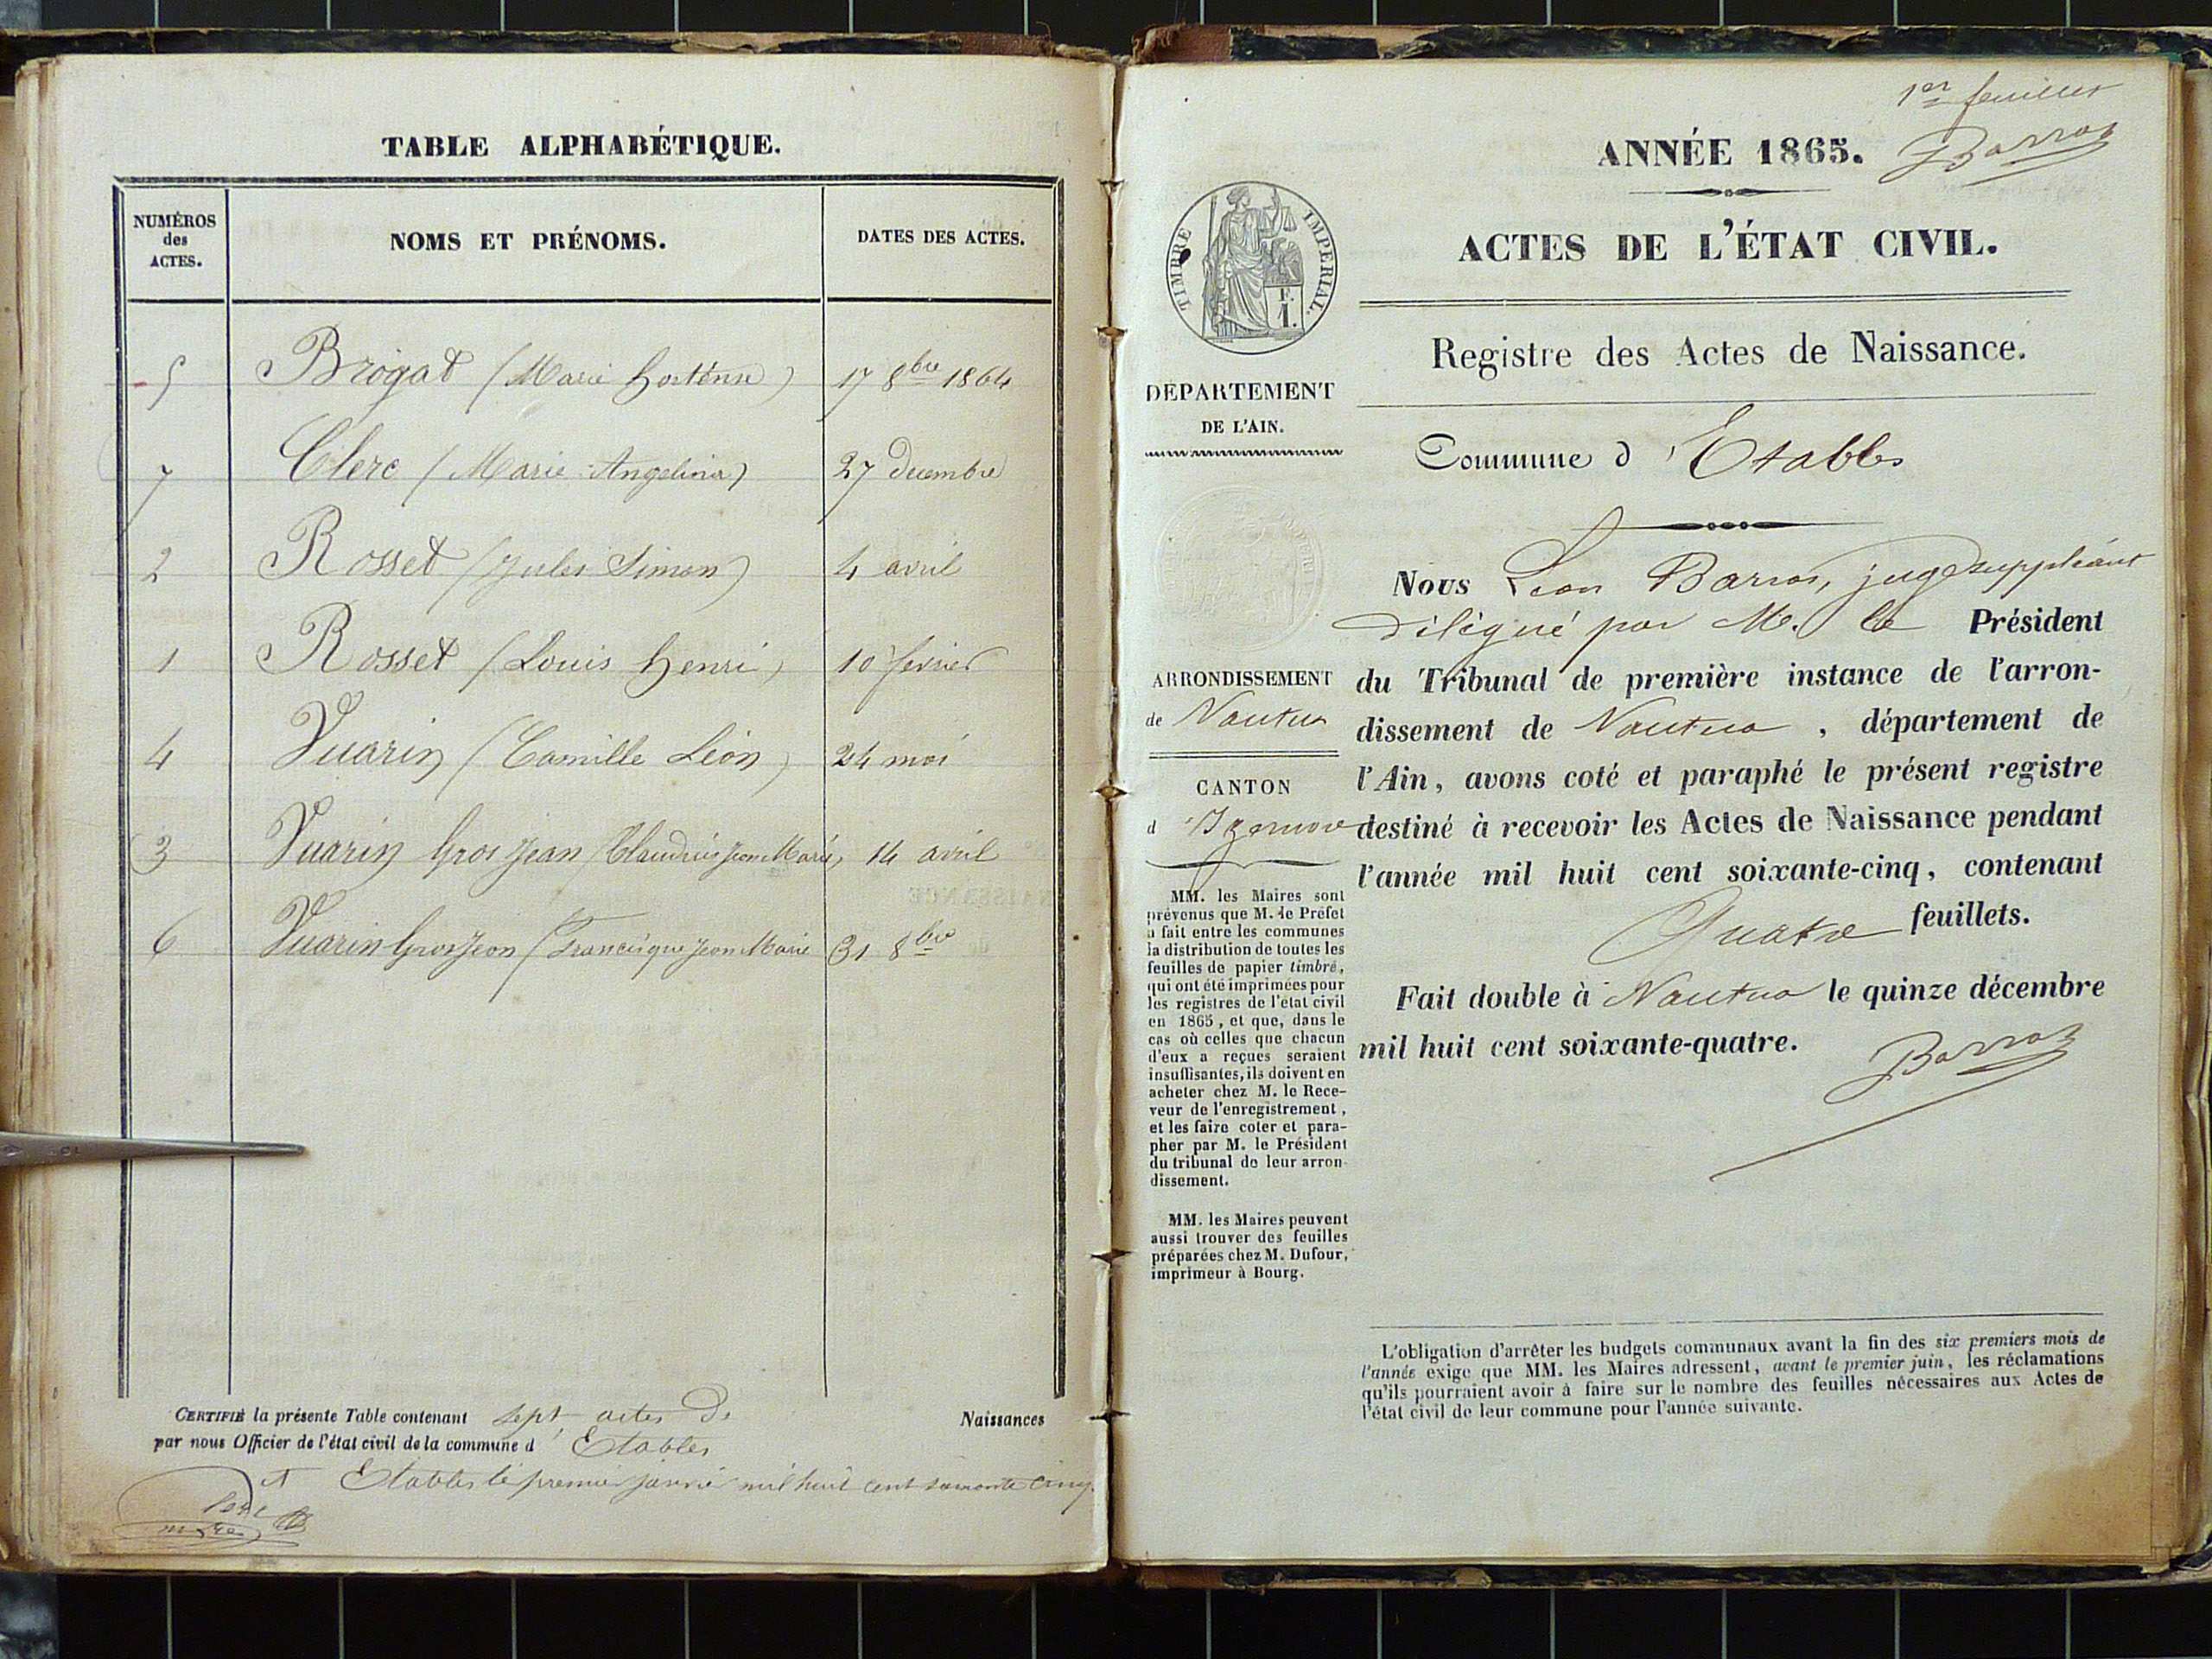 TABLE ALPHABÉTIQUE.
NUMÉROS
des
ACTES.
NOMS ET PRÉNOMS.
DATES DES ACTES.
5 Brogat (Marie hortense) 17 8bre 1864
7 Clerc (Marie Angelina) 27 decembre
2 Rosset (Jules Simon) 4 avril
1 Rosset (Louis henri) 10 fevrier
4 Vuarin (Camille Léon) 24 mai
3 Vuarin Gros Jean (Claudius Jean Marie) 14 avril
6 Vuarin Gros Jean (Francisque Jean Marie 31 8bre
CERTIFIÉ la présente Table contenant sept actes de Naissances
par nous Officier de l'état civil de la commune d'Etables
A Etables le premier janvier mil huit cent soixante cinq.
1er feuillet
Barroz
ANNÉE 1865.
ACTES DE L'ÉTAT CIVIL.
TIMBRE IMPÉRIAL.
F.
1.
Registre des Actes de Naissance.
DÉPARTEMENT
DE L'AIN.
Commune d'Etables
Nous Léon Barroz, juge suppléant
délégué par M. le Président
du Tribunal de première instance de l'arron-
dissement de Nantua, département de
l'Ain, avons coté et paraphé le présent registre
destiné à recevoir les Actes de Naissance pendant
l'année mil huit cent soixante-cinq, contenant
Quatre feuillets.
Fait double à Nantua le quinze décembre
mil huit cent soixante-quatre.
Barroz
ARRONDISSEMENT
de Nantua
CANTON
d'Izernore
MM. les Maires sont
prévenus que M. le Préfet
a fait entre les communes
la distribution de toutes les
feuilles de papier timbré,
qui ont été imprimées pour
les registres de l'état civil
en 1865, et que, dans le
cas où celles que chacun
d'eux a reçues seraient
insuffisantes, ils doivent en
acheter chez M. le Rece-
veur de l'enregistrement,
et les faire coter et para-
pher par M. le Président
du tribunal de leur arron-
dissement.
MM. les Maires peuvent
aussi trouver des feuilles
préparées chez M. Dufour,
imprimeur à Bourg.
L'obligation d'arrêter les budgets communaux avant la fin des six premiers mois de
l'année exige que MM. les Maires adressent, avant le premier juin, les réclamations
qu'ils pourraient avoir à faire sur le nombre des feuilles nécessaires aux Actes de
l'état civil de leur commune pour l'année suivante.